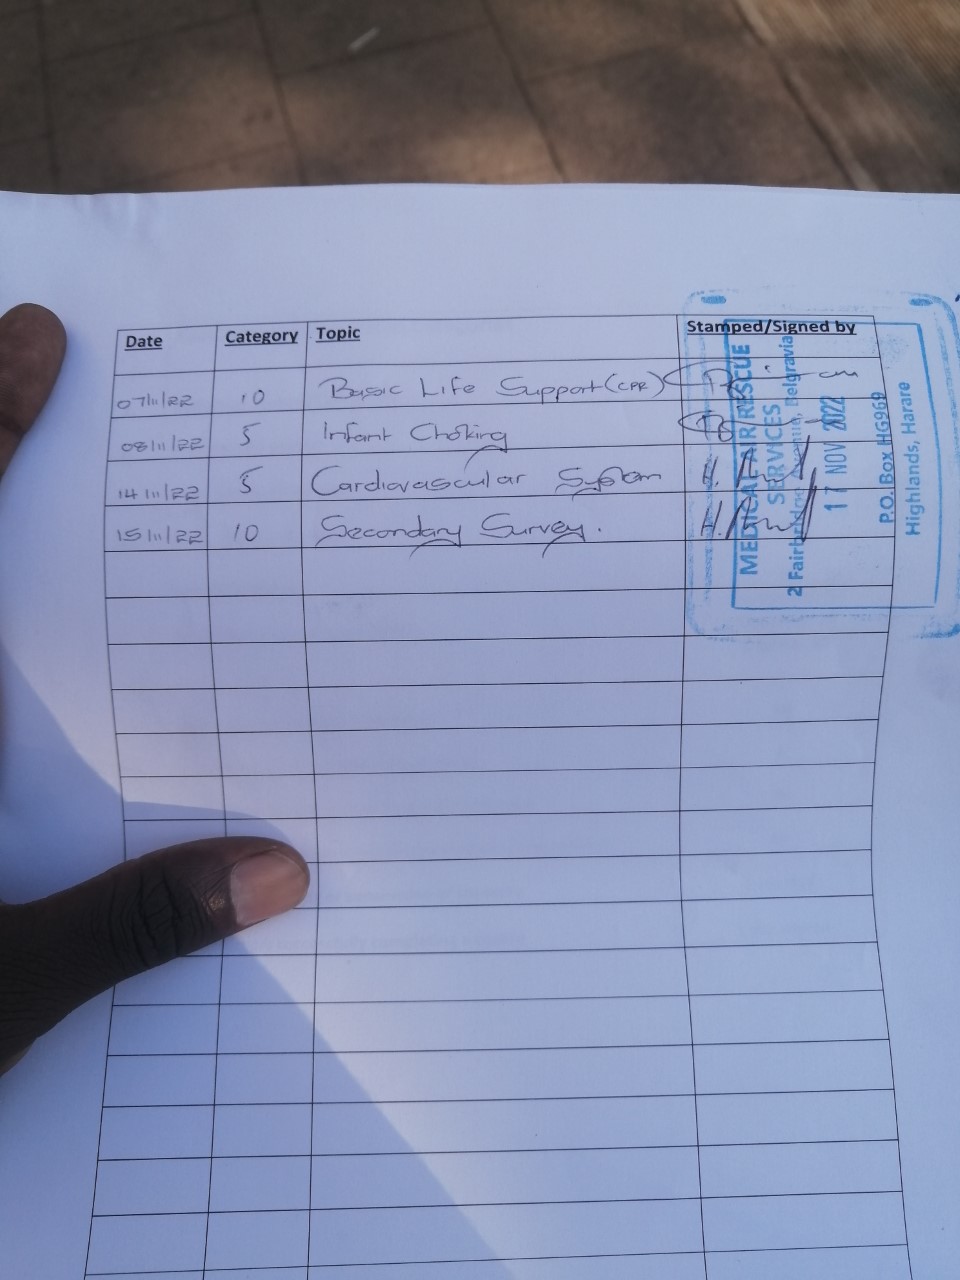 Date Category Topic Stamped/Signed by
07/11/22 10 Basic Life Support (CPR)
08/11/22 5 Infant Choking
14/11/22 5 Cardiovascular System
15/11/22 10 Secondary Survey.
MEDICAL AIR RESCUE
SERVICES
2 Fairbridge Avenue, Belgravia
17 NOV 2022
P.O. Box HG969
Highlands, Harare